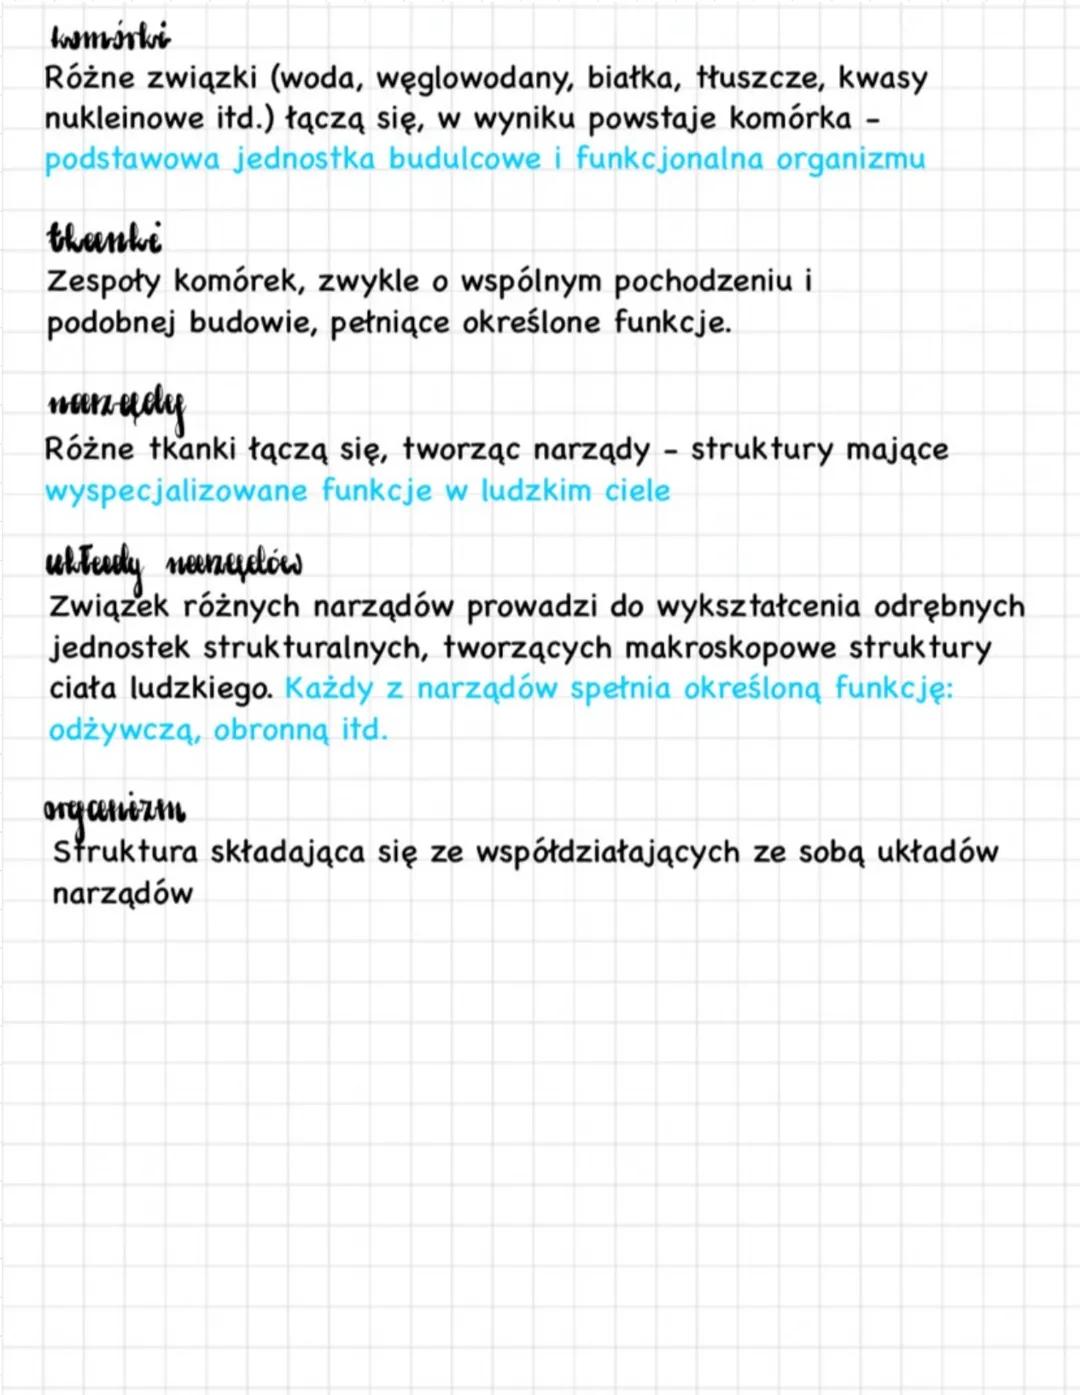 komórki
Różne związki (woda, węglowodany, białka, tłuszcze, kwasy
nukleinowe itd.) łączą się, w wyniku powstaje komórka -
podstawowa jednostka budulcowe i funkcjonalna organizmu
tkanki
Zespoły komórek, zwykle o wspólnym pochodzeniu i
podobnej budowie, pełniące określone funkcje.
narządy
Różne tkanki łączą się, tworząc narządy - struktury mające
wyspecjalizowane funkcje w ludzkim ciele
układy narządów
Związek różnych narządów prowadzi do wykształcenia odrębnych
jednostek strukturalnych, tworzących makroskopowe struktury
ciała ludzkiego. Każdy z narządów spełnia określoną funkcję:
odżywczą, obronną itd.
organizm
Struktura składająca się ze współdziałających ze sobą układów
narządów